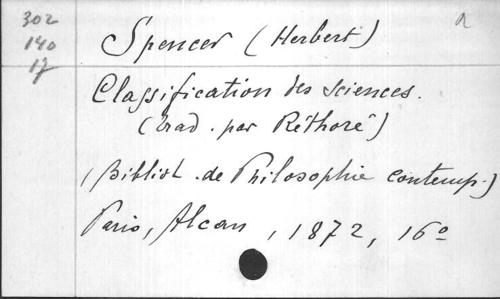 302 a
140
17
Spencer (Herbert)
Classification des sciences.
(Trad. par Réthoré)
(Bibliot. de Philosophie contemp.)
Paris, Alcan, 1872, 16º